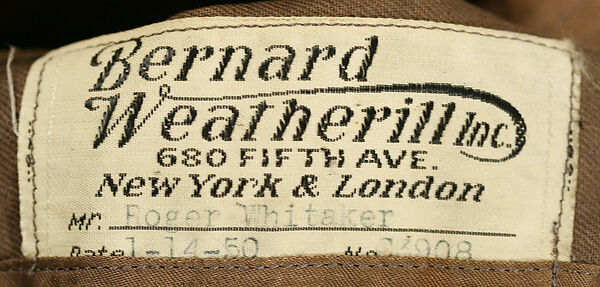 Bernard
Weatherill Inc.
680 FIFTH AVE.
New York & London
Mr. Roger Whitaker
Date 1-14-50 No 24908